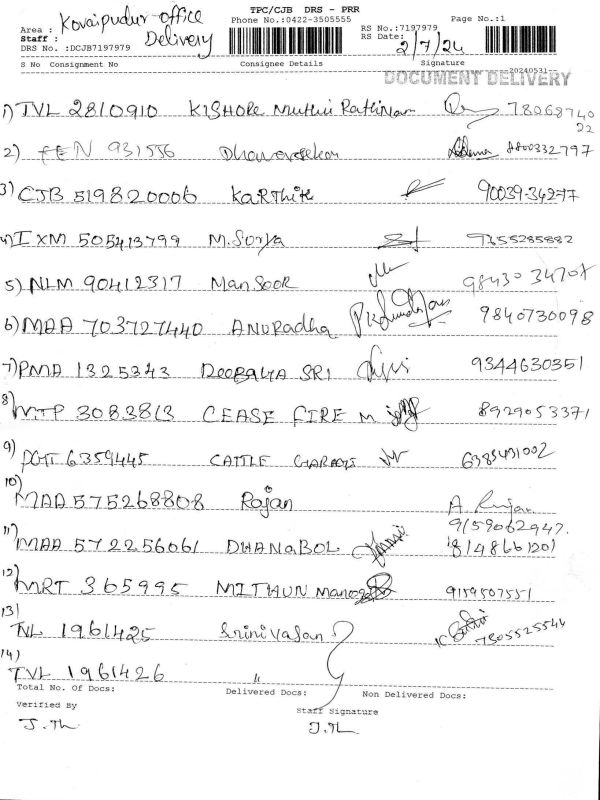 TPC/CJB DRS - PRR
Area : Kovaipudur-office Delivery
Phone No.:0422-3505555
RS No.:7197979
Page No.:1
Staff :
RS Date: 2/7/24
DRS No. :DCJB7197979
S No Consignment No Consignee Details Signature
20240531
DOCUMENT DELIVERY
1) TVL 2810910 KISHORE Muthu Rathinam 78068740
22
2) FEN 931556 Dhanasekar 8800332797
3) CJB 519820006 Karthik 90039-34277
4) IXM 505413799 M.Surya 9355285882
5) NLM 90412317 Mansoor 98430 34707
6) MAA 703727440 ANURadha 9840730098
7) PMA 1325343 DEEPALYA SRI 9344630351
8) MTP 3083813 CEASE FIRE M 8929053371
9) 6359445 CATTLE 6385431002
10) MAA 575268808 Rajan A Rajan
9159062947.
11) MAA 572256061 DHANABOL 8148661201
12) MRT 365995 MITHUN Manoj 9159507551
13) NL 1961425 Srinivasan 7305525544
14) TVL 1961426 "
Total No. Of Docs: Delivered Docs: Non Delivered Docs:
Verified By Staff Signature
J.Th J.Th